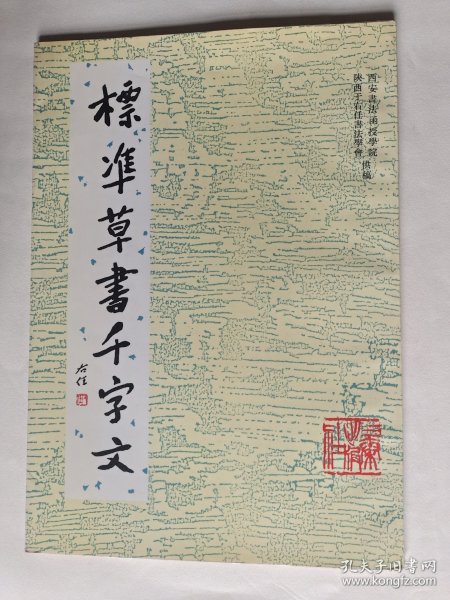 標準草書千字文
右任
西安書法函授學院
陝西于右任書法學會
供稿
孔夫子旧书网
www.kongfz.com